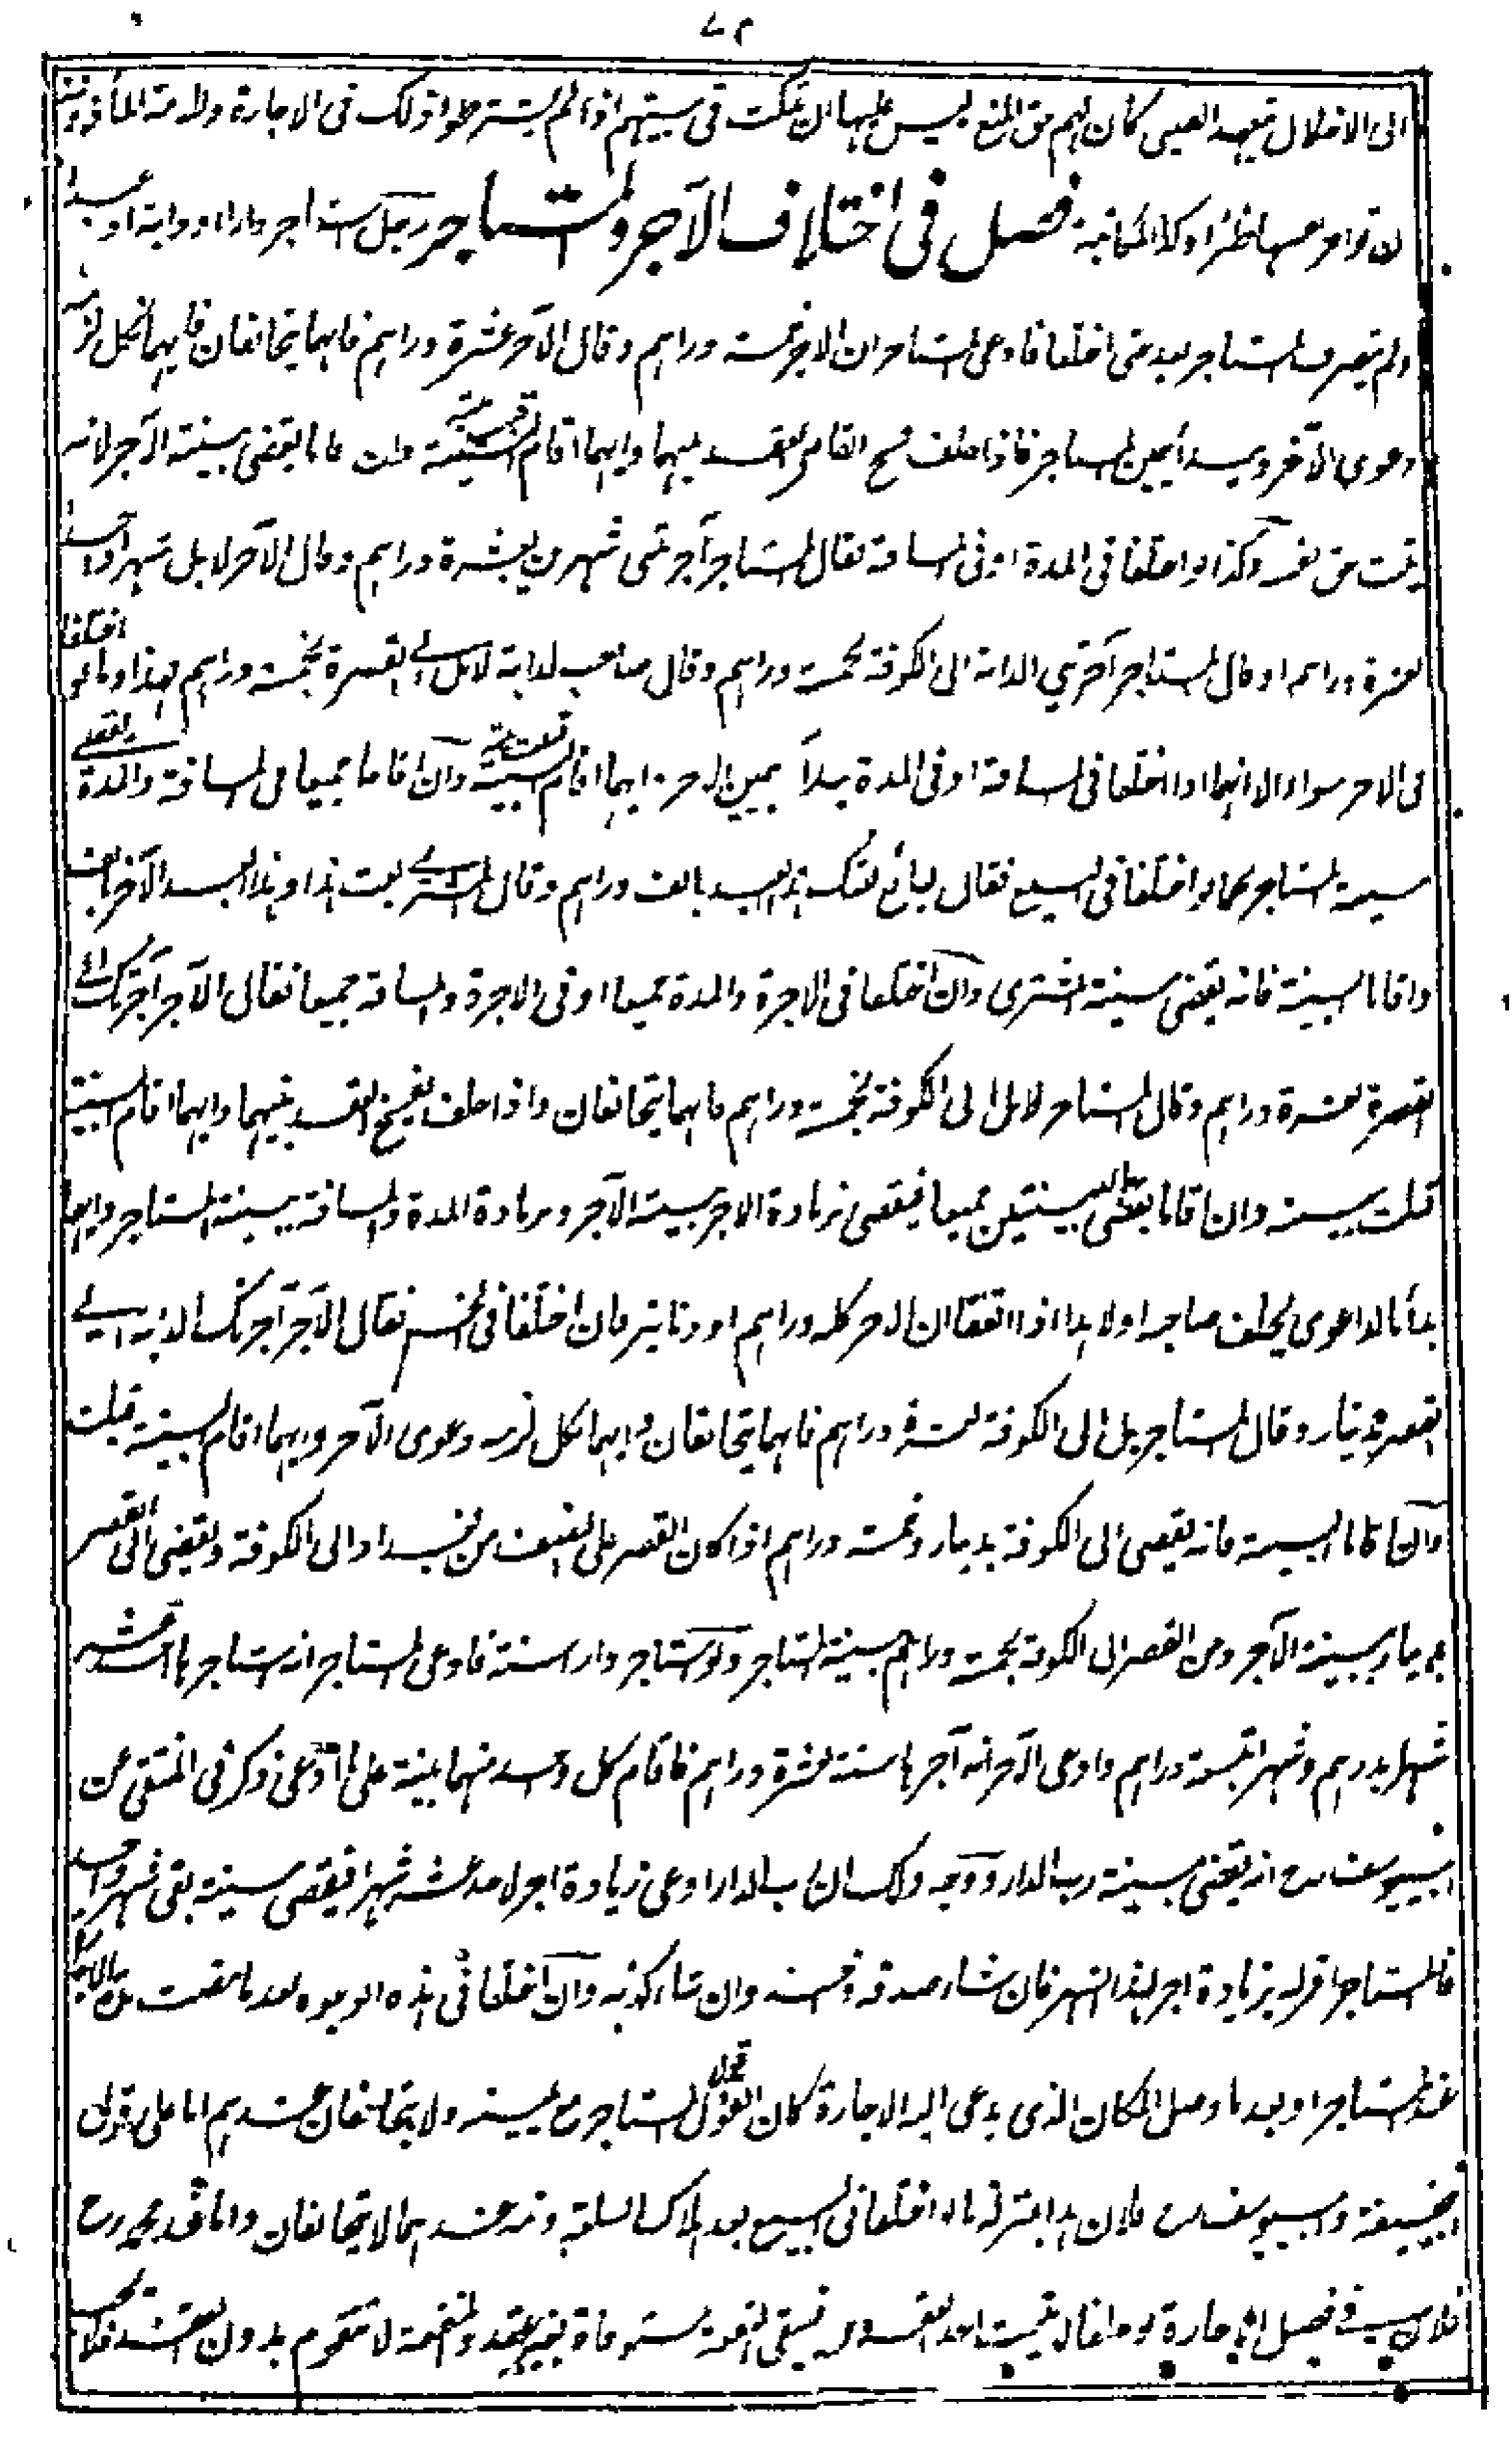 الى الاخلال بتعهد الصبى كان لهم حق المنع ليس عليها ان تمكث فى بيتهم اذا لم يشترطوا ذلك فى الاجارة والامة المأذونة
ان تواجر نفسها ظئرا وكذا المكاتبة فصل فى اختلاف الآجر والمستاجر رجل استاجر دارا او دابة او عبدا
ولم يتصرف المستاجر بعد حتى اختلفا فادعى المستاجر ان الاجر خمسة دراهم وقال الآجر عشرة دراهم فانهما يتحالفان فايهما نكل لزمه
دعوى الآخر ويبدأ بيمين المستاجر فاذا حلف فسخ القاضى العقد بينهما وايهما اقام البينة قبلت بينته فان اقاما يقضى ببينة الآجر لانه
يثبت حق نفسه وكذا لو اختلفا فى المدة او فى المسافة فقال المستاجر آجرتنى شهرين بعشرة دراهم وقال الآجر لا بل شهرا واحدا
بعشرة دراهم او قال المستاجر آجرتنى الدابة الى الكوفة بخمسة دراهم وقال صاحب الدابة لا بل الى القصرة بخمسة دراهم فهذا وما لو اختلفا
فى الاجر سواء الا انهما اذا اختلفا فى المسافة او فى المدة يبدأ بيمين الآجر وايهما اقام البينة قبلت بينته وان اقاما جميعا فى المسافة والمدة يقضى
ببينة المستاجر كما لو اختلفا فى البيع فقال البائع بعتك هذا العبد بالف دراهم وقال المشترى بعت هذا وهذا العبد الآخر بالف
واقاما البينة فانه يقضى ببينة المشترى وان اختلفا فى الاجرة والمدة جميعا او فى الاجرة والمسافة جميعا فقال الآجر آجرتك الى
القصرة بعشرة دراهم وقال المستاجر لا بل الى الكوفة بخمسة دراهم فانهما يتحالفان واذا حلف يفسخ العقد بينهما وايهما اقام البينة
قبلت بينته وان اقاما يقضى بالبينتين جميعا فيقضى بزيادة الاجر ببينة الآجر وبزيادة المدة والمسافة ببينة المستاجر وايهما
بدأ بالدعوى يحلف صاحبه اولا هذا اذا اتفقا ان الاجر كله دراهم او دنانير فان اختلفا فى الجنس فقال الآجر آجرتك الدابة الى
القصر بدينار وقال المستاجر بل الى الكوفة بعشرة دراهم فانهما يتحالفان وايهما نكل لزمه دعوى الآخر وايهما اقام البينة قبلت
وان اقاما البينة فانه يقضى الى الكوفة بدينار وخمسة دراهم اذا كان القصر على النصف من بغداد الى الكوفة ويقضى الى القصر
بدينار ببينة الآجر ومن القصر الى الكوفة بخمسة دراهم ببينة المستاجر ولو استاجر دارا سنة فادعى المستاجر انه استاجرها احد عشر
شهرا بدرهم وشهرا بتسعة دراهم وادعى الآجر انه آجرها سنة بعشرة دراهم فاقام كل واحد منهما بينة على ما ادعى ذكر فى المنتقى عن
ابى يوسف رح انه يقضى ببينة رب الدار ووجه ذلك ان رب الدار ادعى زيادة اجر لاحد عشر شهرا فيقضى ببينته بقى شهر واحد
فالمستاجر اقر له بزيادة اجر لهذا الشهر فان شاء صدقه وخمسه وان شاء كذبه وان اختلفا فى هذه الوجوه بعد ما مضت مدة الاجارة
عند المستاجر او بعد ما وصل المكان الذى يدعى اليه الاجارة كان القول قول المستاجر مع يمينه ولا يتحالفان عندهم اما على قول
ابى حنيفة وابى يوسف رح فلان هذا بمنزلة ما لو اختلفا فى المبيع بعد هلاك السلعة وثمه عندهما لا يتحالفان واما عند محمد رح
فلان فى فصل الاجارة لو حلفا لا يثبت احد العقدين فتبقى المنفعة مستوفاة بغير عقد والمنفعة لا تتقوم بدون العقد فلا يجب